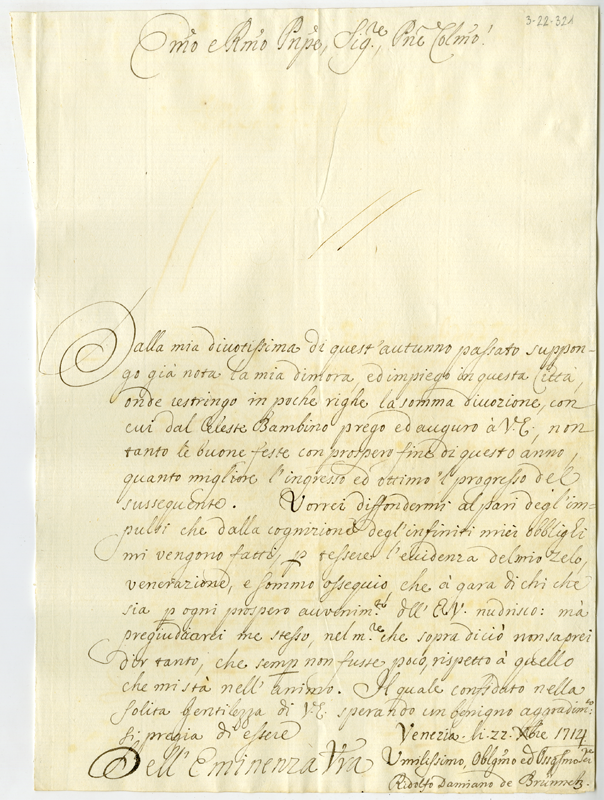 3-22-321
Em̃o e Rm̃o Pñpe, Sig.re, Pñe Colm̃o!
Dalla mia divotissima di quest'autunno passato suppon-
go già nota la mia dimora, ed impiego in questa Città,
onde restringo in poche righe la somma divozione, con
cui dal Celeste Bambino prego ed auguro à V.E., non
tanto le buone feste con prospero fine di questo anno,
quanto migliore l'ingresso ed ottimo 'l progresso del
sussequente. Vorrei diffondermi al pari degl'im-
pulsi che dalla cognizione degl'infiniti miei obblighi
mi vengono fatti, p tessere l'evidenza del mio zelo,
venerazione, e sommo ossequio che à gara di chi che
sia p ogni prospero avvenim.to dell'E.V. nudrisco: mà
pregiudicarei me stesso, nel m.re che sopra di ciò non saprei
dir tanto, che semp non fusse poco, rispetto à quello
che mi stà nell'animo. Il quale confidato nella
solita gentilezza di V.E. sperando un benigno aggradim.to
si pregia di essere Venezia li 22. Xbre 1714
Dell'Eminenza Vr̃a Umilissimo, Oblg̃mo ed Ossq̃mo
Ridolfo Damiano de Brünnek.